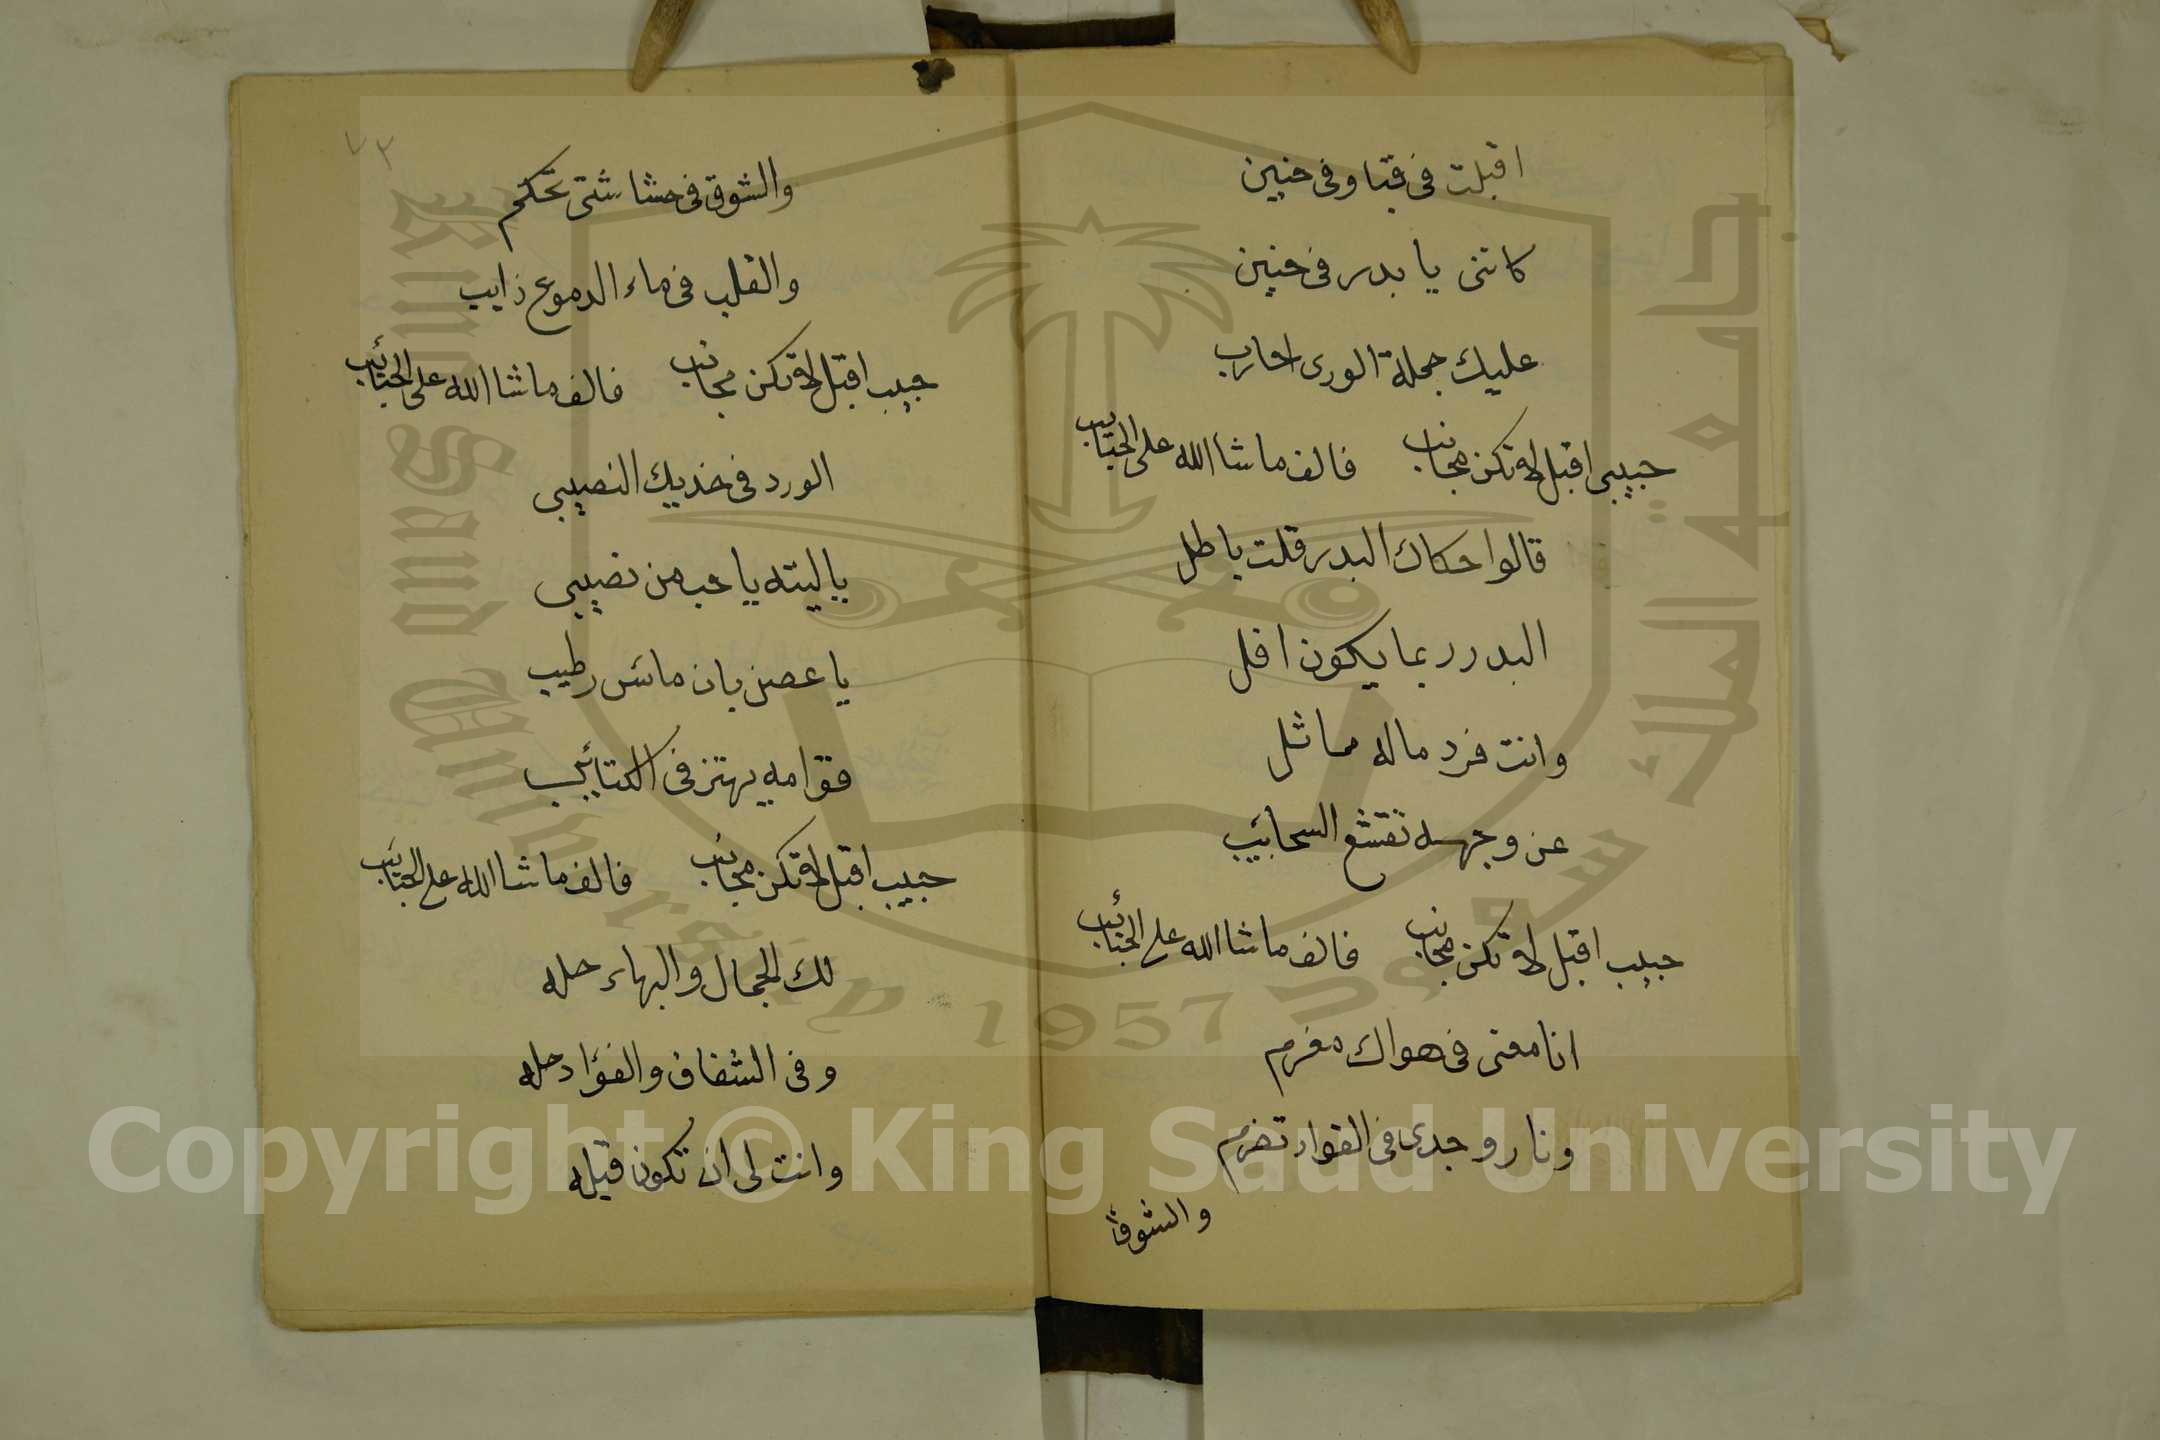 اقبلت فى قبا وفى حنين
كاننى يا بدر فى حنين
عليك جملة الورى احارب
حبيبى اقبل لا تكن مجانب فالف ما شا الله على الحبايب
قالوا حكاك البدر قلت باطل
البدر ربما يكون افل
وانت فرد ماله مماثل
عن وجهه تقشع السحائب
حبيب اقبل لا تكن مجانب فالف ما شا الله على الحبائب
انا معنى فى هواك مغرم
ونار وجدى فى الفواد تضرم
والشوق
٧٣
والشوق فى حشاشتى تحكم
والقلب فى ماء الدموع ذايب
حبيب اقبل لا تكن مجانب فالف ما شا الله على الحبائب
الورد فى خديك النصيبى
ياليته يا حب من نصيبى
يا غصن بان مائس رطيب
قوامه يهتز فى الكتائب
حبيب اقبل لا تكن مجانب فالف ما شا الله على الحبائب
لك الجمال والبهاء حله
وفى الشفاف والفؤاد حله
وانت لى ان تكون قبله
جامعة الملك سعود
King Saud University
1957
Copyright © King Saud University